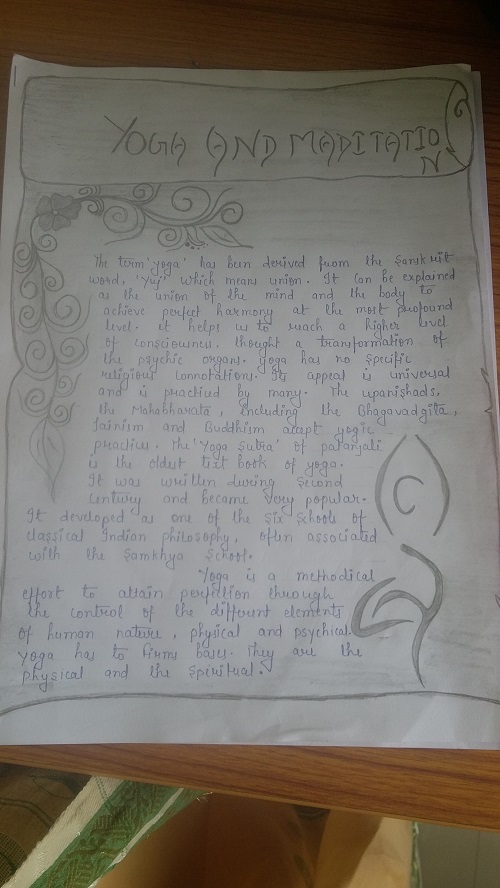 YOGA AND MADITATIO
N
The term 'yoga' has been derived from the Sanskrit
word, 'Yuj' which means union. It can be explained
as the union of the mind and the body to
achieve perfect harmony at the most profound
level. it helps us to reach a higher level
of consciousness. thought a transformation of
the psychic organs. yoga has no specific
religious connotations. Its appeal is universal
and is practised by many. The upanishads,
the Mahabharata, including the Bhagavadgita,
Jainism and Buddhism accept yogic
practices. The 'Yoga Sutra' of patanjali
is the oldest text book of yoga.
It was written during second
century and became very popular.
It developed as one of the six schools of
classical Indian philosophy, often associated
with the Samkhya School.
Yoga is a methodical
effort to attain perfection through
the control of the different elements
of human nature, physical and psychical.
yoga has to firms bases. They are the
physical and the spiritual.